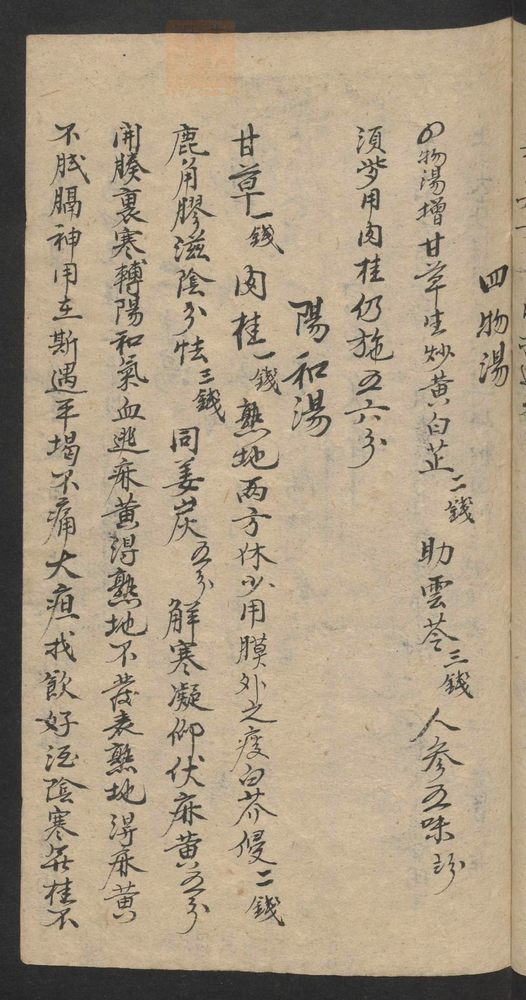 四物湯
四物湯增甘草生炒黃白芷二錢助雲苓三錢人參五味
須學用肉桂仍施五六分
陽和湯
甘草一錢肉桂一錢熟地兩方休少用膜外之痰白芥侵二錢
鹿角膠滋陰分怯三錢同姜炭五分解寒凝仰伏麻黃五分
開腠裏寒轉陽和氣血逃麻黃得熟地不發表熟地得麻黃
不膩膈神用在斯遇平塌不痛大疽找飲好酒陰寒無桂不